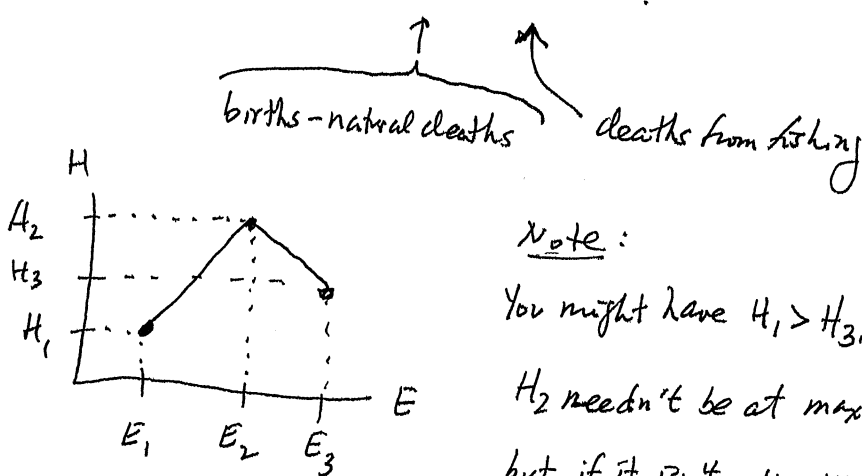 births-natural deaths
deaths from fishing
H
H₂
H₃
H₁
E₁
E₂
E₃
E
Note:
You might have H₁ > H₃.
H₂ needn't be at max
but if it